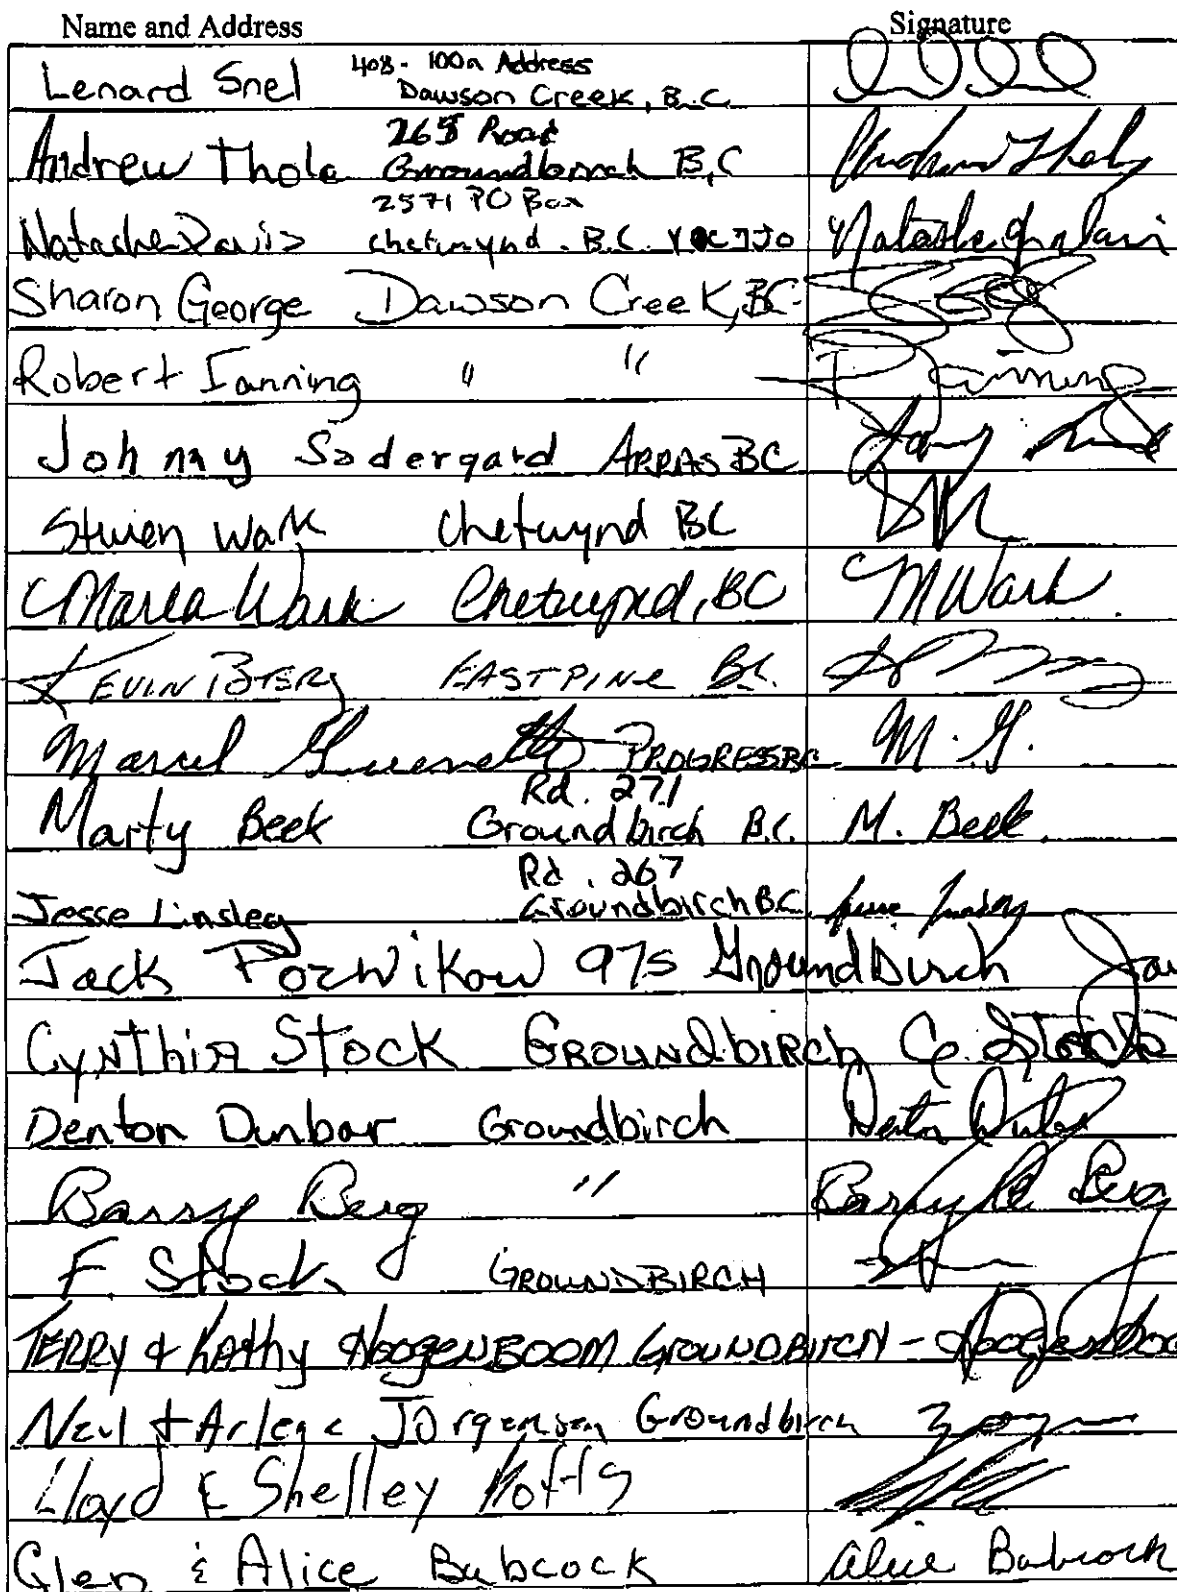 Name and Address Signature
408 - 100a Address
Lenard Snel Dawson Creek, B.C.
265 Road
Andrew Thole B,C
2571 PO Box
Natasha Davis chetwynd . B.C. V0C1J0
Sharon George Dawson Creek, BC
Robert Fanning " " R Fanning
Johnny Sodergard ARRAS BC
Steven Wark Chetwynd BC
Marla Wark Chetwynd, BC M Wark
KEVIN EAST PINE BC.
Marcel Guenette PROGRESS BC M. G.
Rd. 271
Marty Beek Groundbirch B.C. M. Beek.
Rd. 267
Jesse Linsley Groundbirch BC Jesse Linsley
Jack 975 Groundbirch
CYNThiA STOCK GROUNDbiRCh C. Stock
Denton Dunbar Groundbirch Denton Dunbar
Barry Berg " Barry Berg
F. Stock GROUNDBIRCH
TERRY & KAthy HoogENBOOM GROUNDBIRCH -
Neil + Arlene Jorgensen Groundbirch
Lloyd & Shelley
Glen & Alice Babcock Alice Babcock